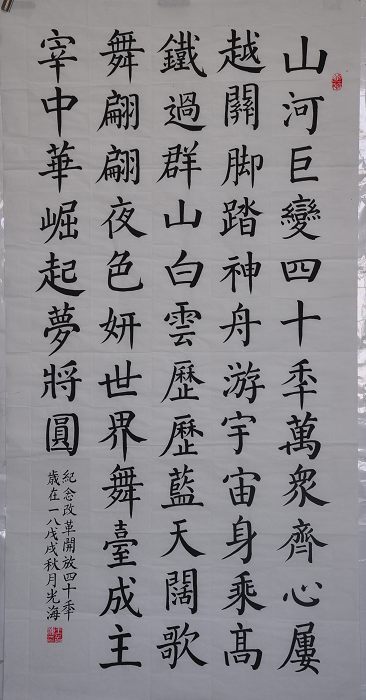 山河巨變四十秊萬衆齊心屢
越關脚踏神舟游宇宙身乘高
鐵過群山白雲歷歷藍天闊歌
舞翩翩夜色妍世界舞臺成主
宰中華崛起夢將圓
紀念改革開放四十秊
歲在一八戊戌秋月光海